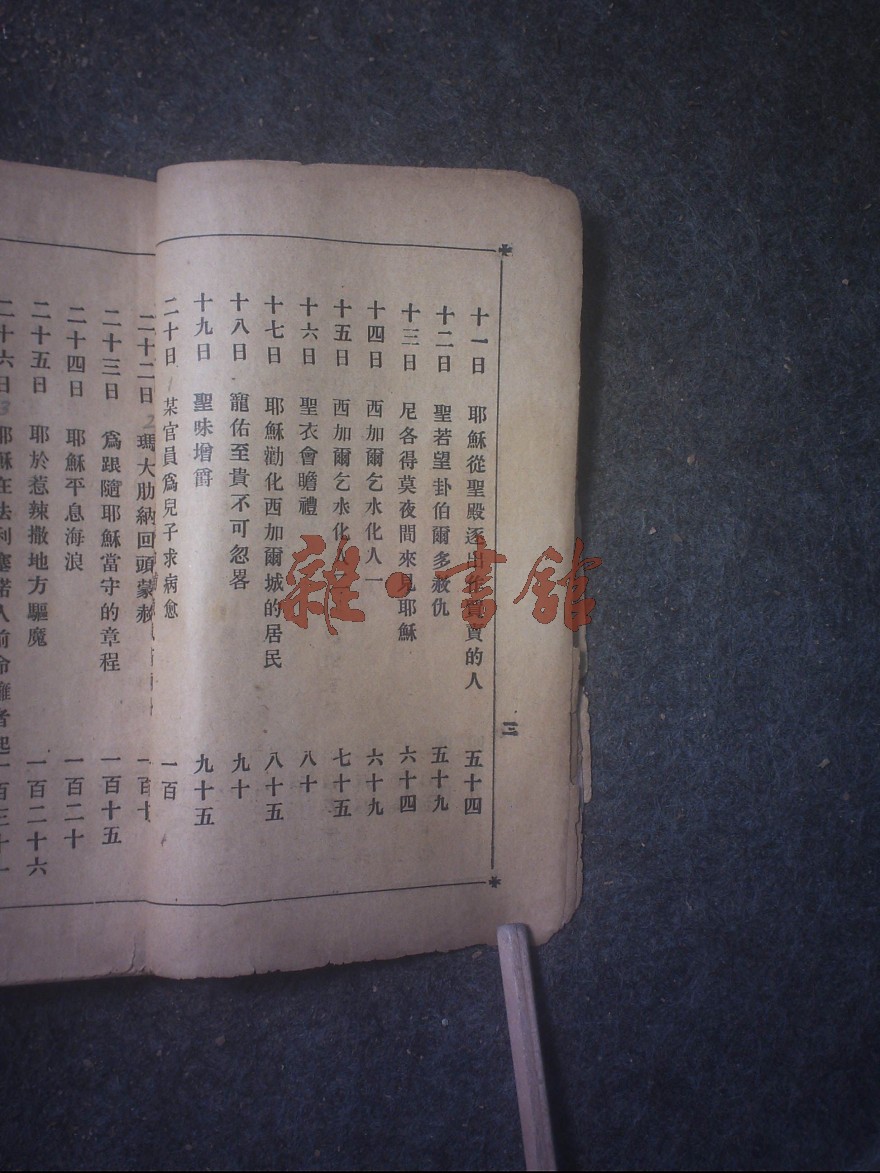 十一日 耶穌從聖殿逐出作買賣的人 五十四
十二日 聖若望卦伯爾多赦仇 五十九
十三日 尼各得莫夜間來見耶穌 六十四
十四日 西加爾乞水化人一 六十九
十五日 西加爾乞水化人 七十五
十六日 聖衣會瞻禮 八十
十七日 耶穌勸化西加爾城的居民 八十五
十八日 寵佑至貴不可忽畧 九十
十九日 聖味增爵 九十五
二十日 某官員爲兒子求病愈 一百
二十二日 瑪大肋納回頭蒙赦 一百十
二十三日 爲跟隨耶穌當守的章程 一百十五
二十四日 耶穌平息海浪 一百二十
二十五日 耶於惹辣撒地方驅魔 一百二十六
二十六日 耶穌在法利塞諾人前命癱者起 一百三十一
三
雜·書舘